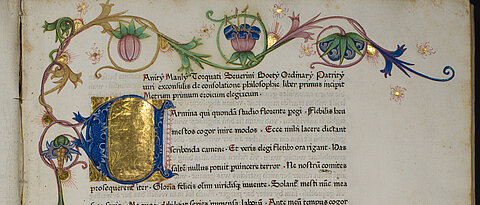 Anitÿ Manlÿ Torquati Seuerini Boetÿ Ordinarÿ Patritÿ
uiri exconsulis de consolatione philosophie liber primus incipit
Metrum primum eroicum elegiacum.
Carmina qui quondã studio florente pegi · Flebilis heu
mestos cogor inire modos · Ecce mihi lacere dictant
scribenda camene · Et ueris elegi fletibo ora rigant · Has
saltẽ nullus potuit pũincere terror · Ne nostrũ comites
prosequerent iter · Gloria felicis olim uiridisqꝫ iuuente · Solant mesti nũc mea